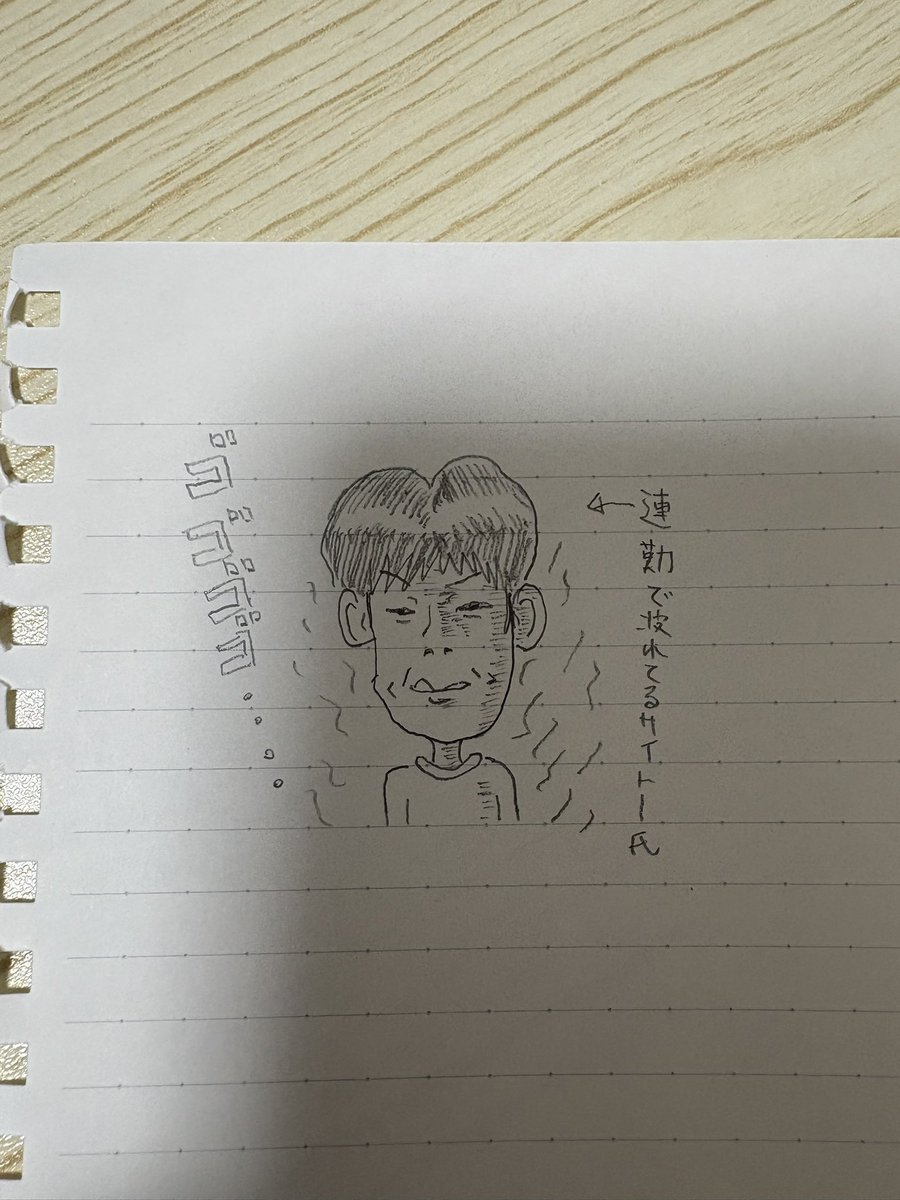 ←連勤で疲れてるサイトー氏
ゴゴゴゴ....